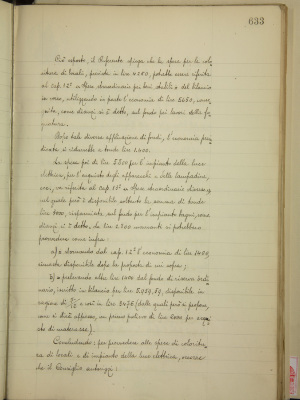 633
Ciò esposto, il Referente spiega che la spesa per la colo
ritura di locali, prevista in lire 4250, potrebbe essere riferita
al cap. 12° "Spese straordinarie per beni stabili" del bilancio
in corso, utilizzando in parte l'economia di lire 5650, con
, come dianzi si è detto, sul fondo pei lavori della fo
gnatura.
Dopo tale diversa applicazione di fondi, l'economia
si ridurrebbe a tonde lire 1400.
La spesa poi di lire 5300 per l'impianto della luce
elettrica, per l'acquisto degli apparecchi e delle lampadine,
, va riferita al cap. 13° "Spese straordinarie diverse"
nel quale però è disponibile soltanto la somma di tonde
lire 3000, risparmiata sul fondo per l'impianto bagni, come
dianzi si è detto. Le lire 2300 mancanti si potrebbero
provvedere come infra:
a) = stornando dal cap. 12° l'economia di lire 1400,
rimasta disponibile dopo la proposta di cui sopra;
b) = prelevando altre lire 1000 dal fondo di riserva ordi
nario, iscritto in bilancio per lire 5.959,59, disponibile in
ragione di e così in lire 5476 (dalle quali però si propone,
come si dirà appresso, un primo prelievo di lire 2000 per
sto di materasse).
Concludendo: per provvedere alle opere di coloritu
ra di locali e di impianto della luce elettrica, occorre
che il Consiglio autorizzi: